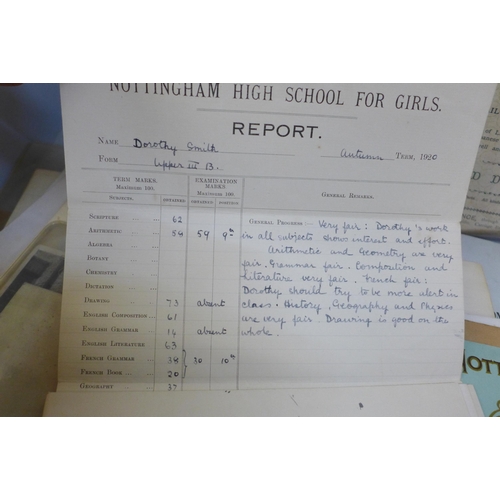 NOTTINGHAM HIGH SCHOOL FOR GIRLS.
REPORT.
NAME Dorothy Smith Autumn TERM, 1920
FORM Upper III B.
TERM MARKS. Maximum 100. EXAMINATION MARKS Maximum 100. GENERAL REMARKS.
SUBJECTS. OBTAINED OBTAINED POSITION
SCRIPTURE 62
ARITHMETIC 54 59 9th
ALGEBRA
BOTANY
CHEMISTRY
DICTATION
DRAWING 73 absent
ENGLISH COMPOSITION 61
ENGLISH GRAMMAR 14 absent
ENGLISH LITERATURE 63
FRENCH GRAMMAR 38 30 10th
FRENCH BOOK 20
GEOGRAPHY 32
GENERAL PROGRESS Very fair: Dorothy's work
in all subjects shows interest and effort.
Arithmetic and Geometry are very
fair. Grammar fair. Composition and
Literature very fair. French fair:
Dorothy should try to be more alert in
class. History, Geography and Physics
are very fair. Drawing is good on the
whole.
OTT